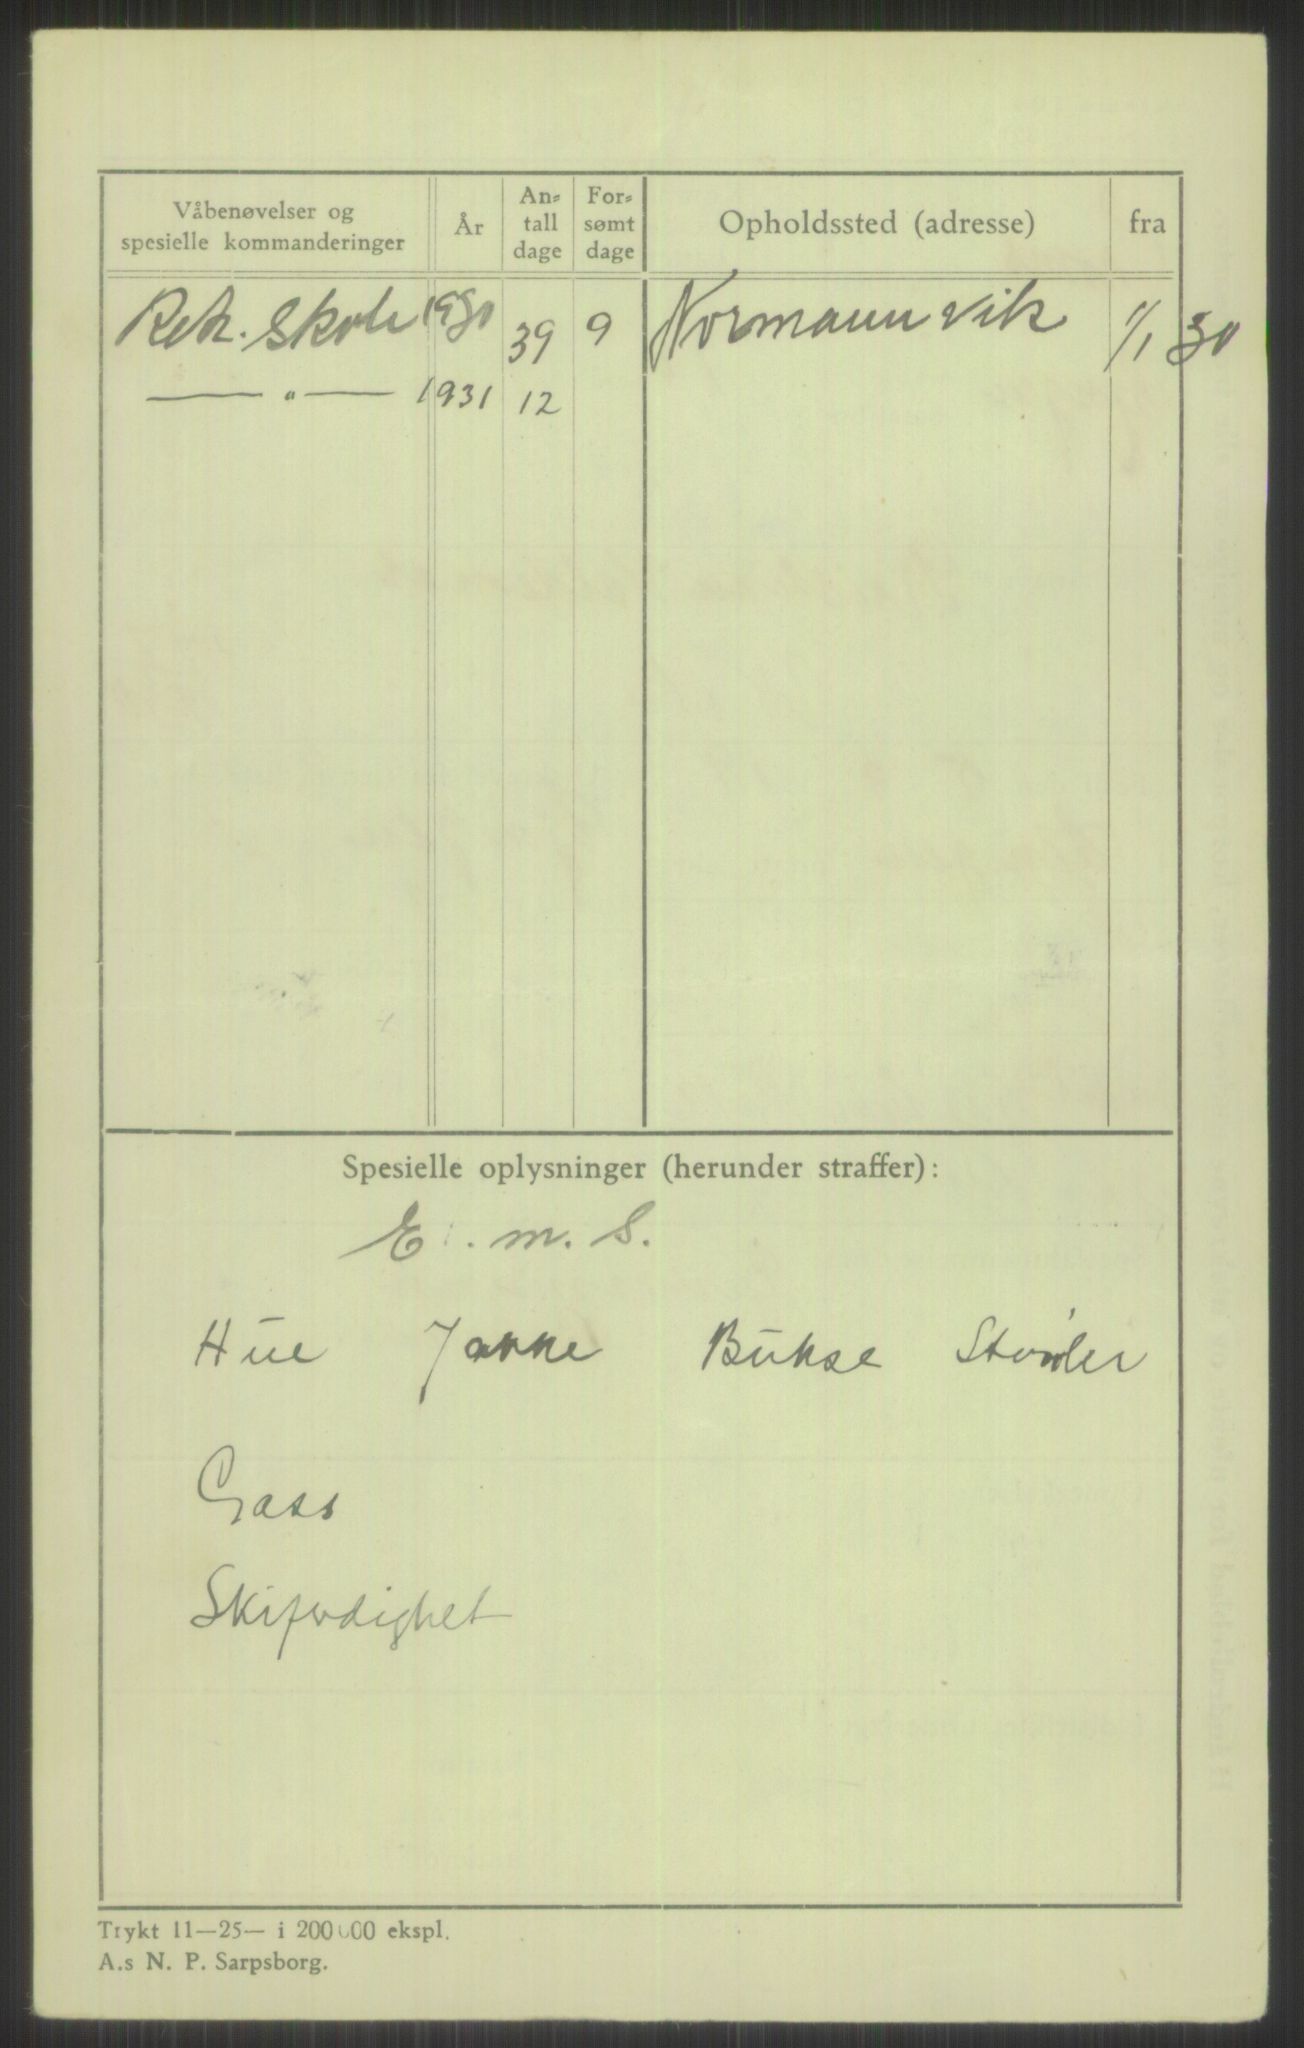 Våbenøvelser og spesielle kommanderinger År An-tall dage For-sømt dage Opholdssted (adresse) fra
Rek. Skole 1930 39 9 Normannvik 1/1 30
— " — 1931 12
Spesielle oplysninger (herunder straffer):
E. m. S.
Hue Jakke Bukse Støvler
Gass
Skiferdighet
Trykt 11—25— i 200000 ekspl.
A.s N. P. Sarpsborg.